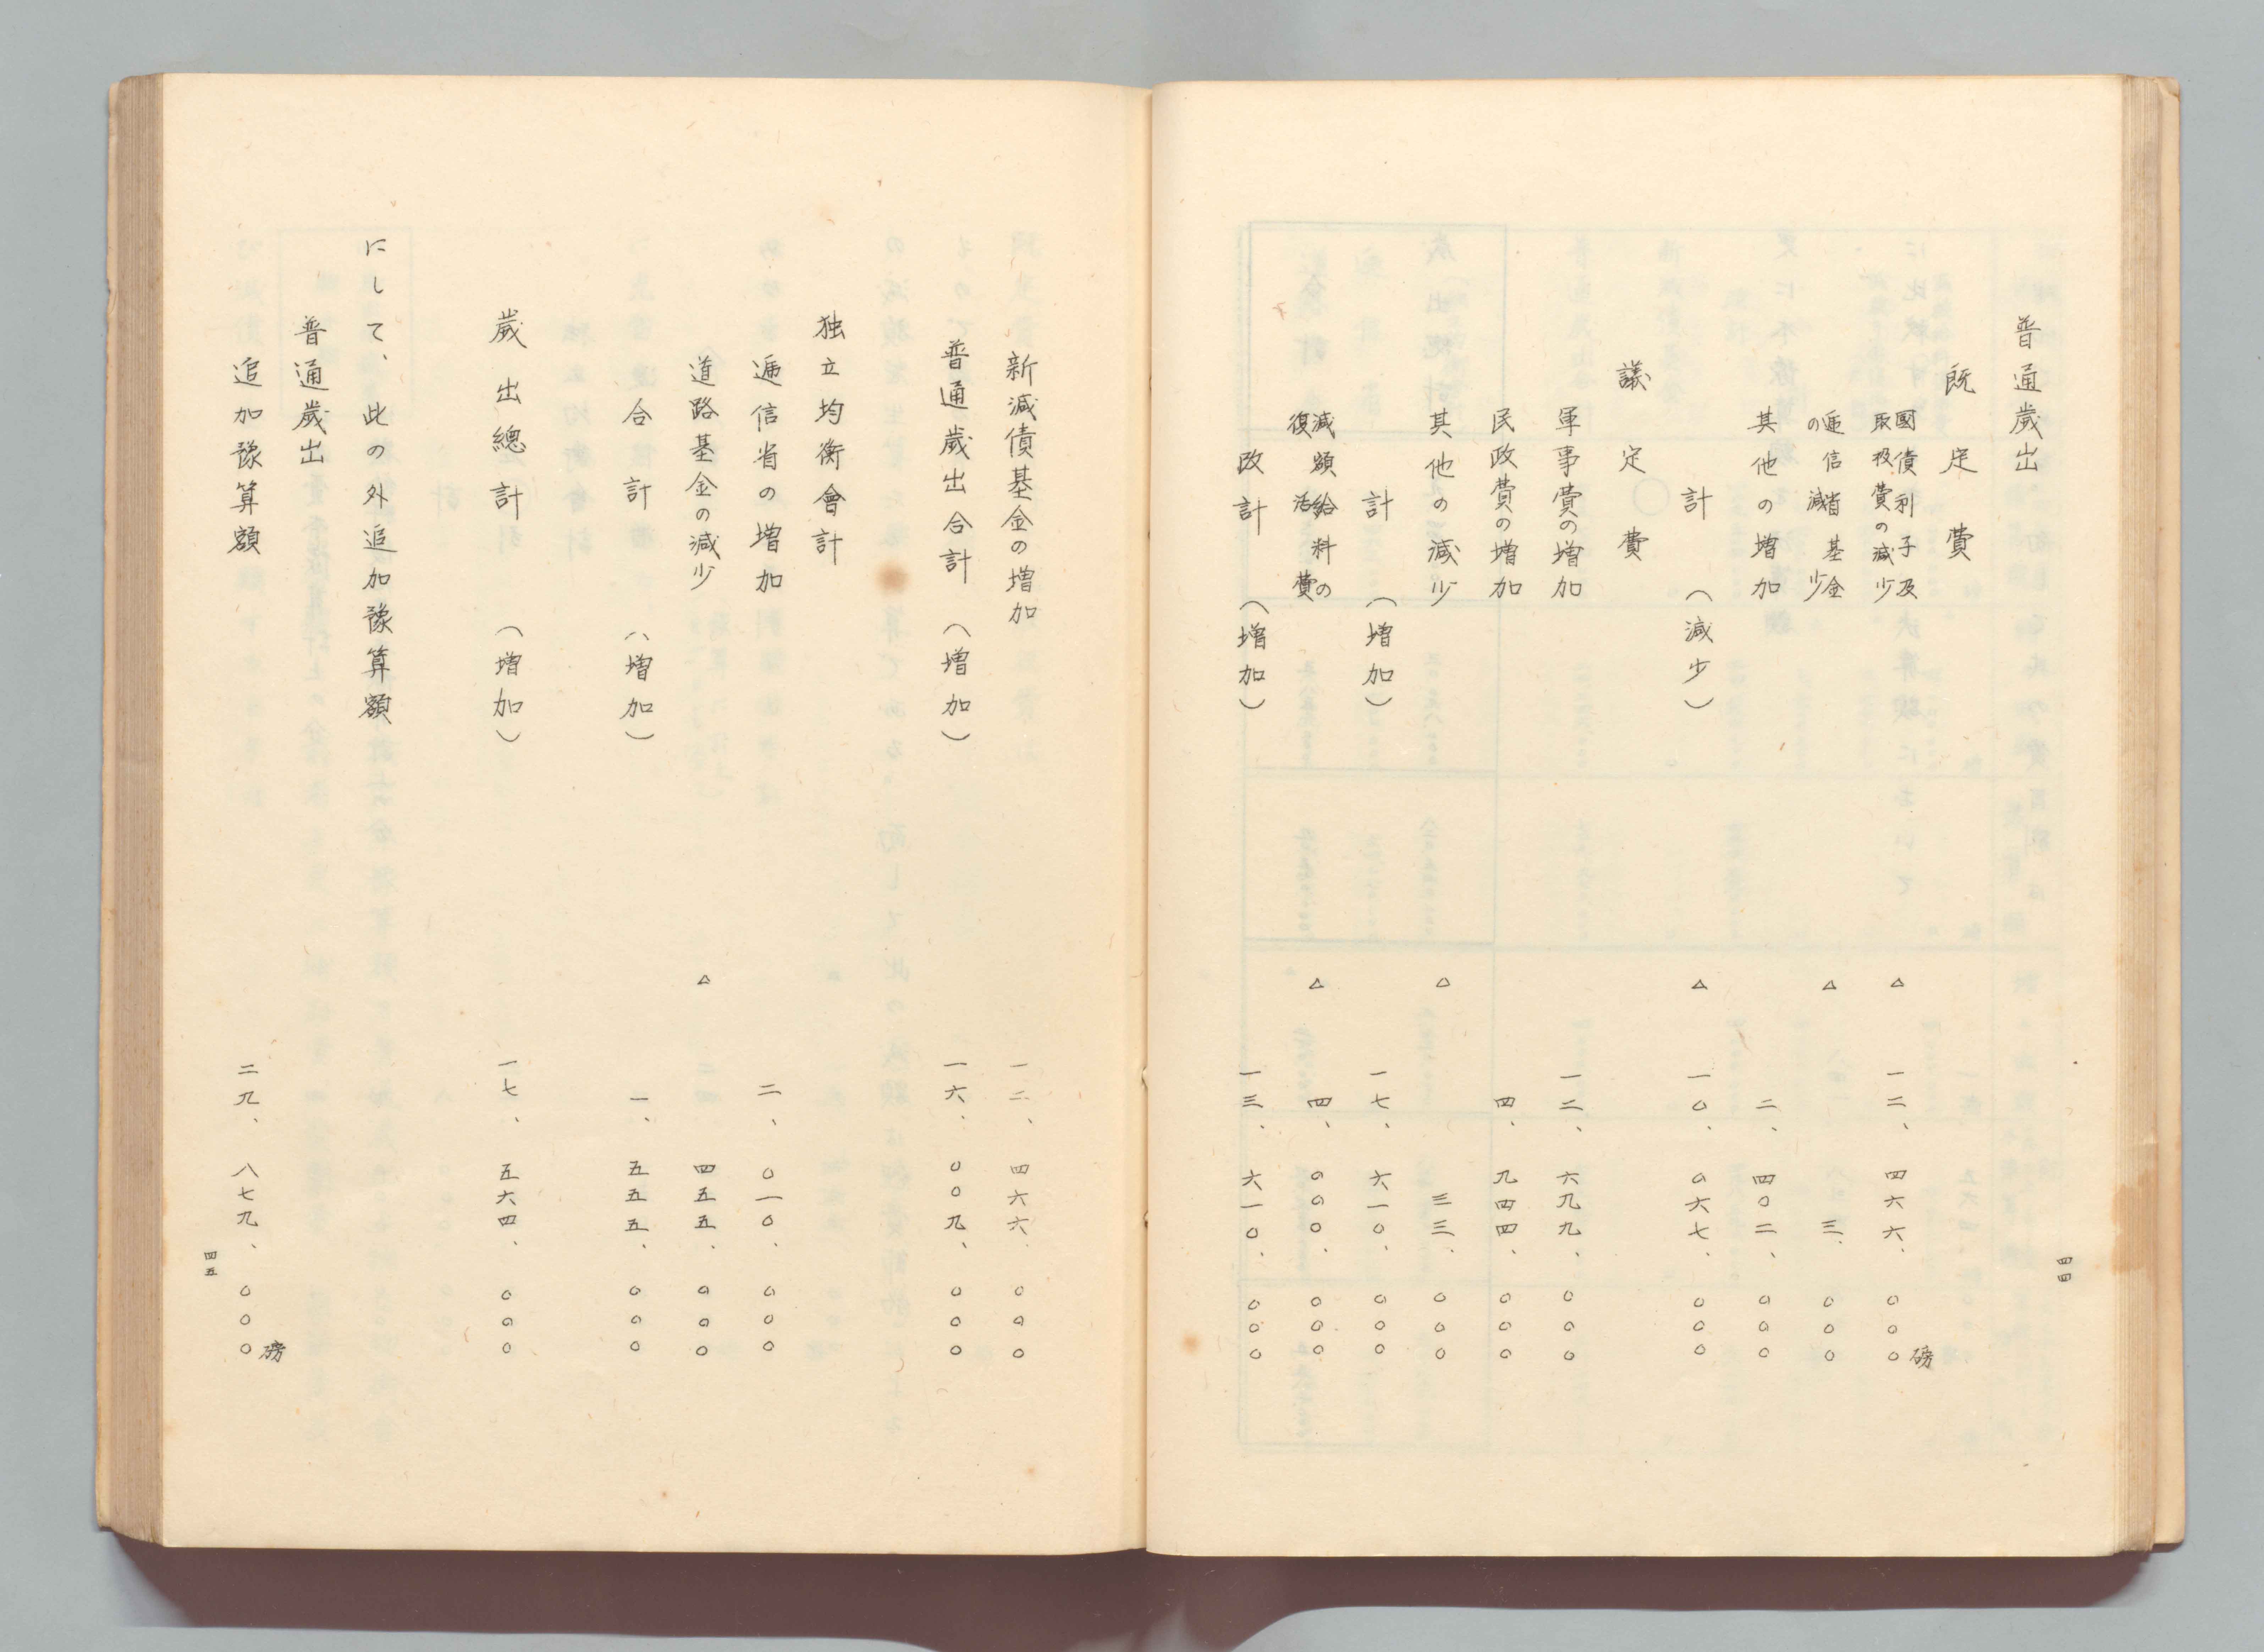 普通歲出
既定費
國債利子及取扱費の減少 △一二、四六六、〇〇〇磅
逓信省基金の減少 △三、〇〇〇
其他の増加 二、四〇二、〇〇〇
計（減少） △一〇、〇六七、〇〇〇
議定費
軍事費の増加 一二、六九九、〇〇〇
民政費の増加 四、九四四、〇〇〇
其他の減少 △三三、〇〇〇
計（増加） 一七、六一〇、〇〇〇
減額給料の復活費 △四、〇〇〇、〇〇〇
改計（増加） 一三、六一〇、〇〇〇
四四
新減債基金の増加 一二、四六六、〇〇〇
普通歲出合計（増加） 一六、〇〇九、〇〇〇
独立均衡會計
逓信省の増加 二、〇一〇、〇〇〇
道路基金の減少 △四五五、〇〇〇
合計（増加） 一、五五五、〇〇〇
歲出總計（増加） 一七、五六四、〇〇〇
にして、此の外追加豫算額
普通歲出
追加豫算額 二九、八七九、〇〇〇磅
四五